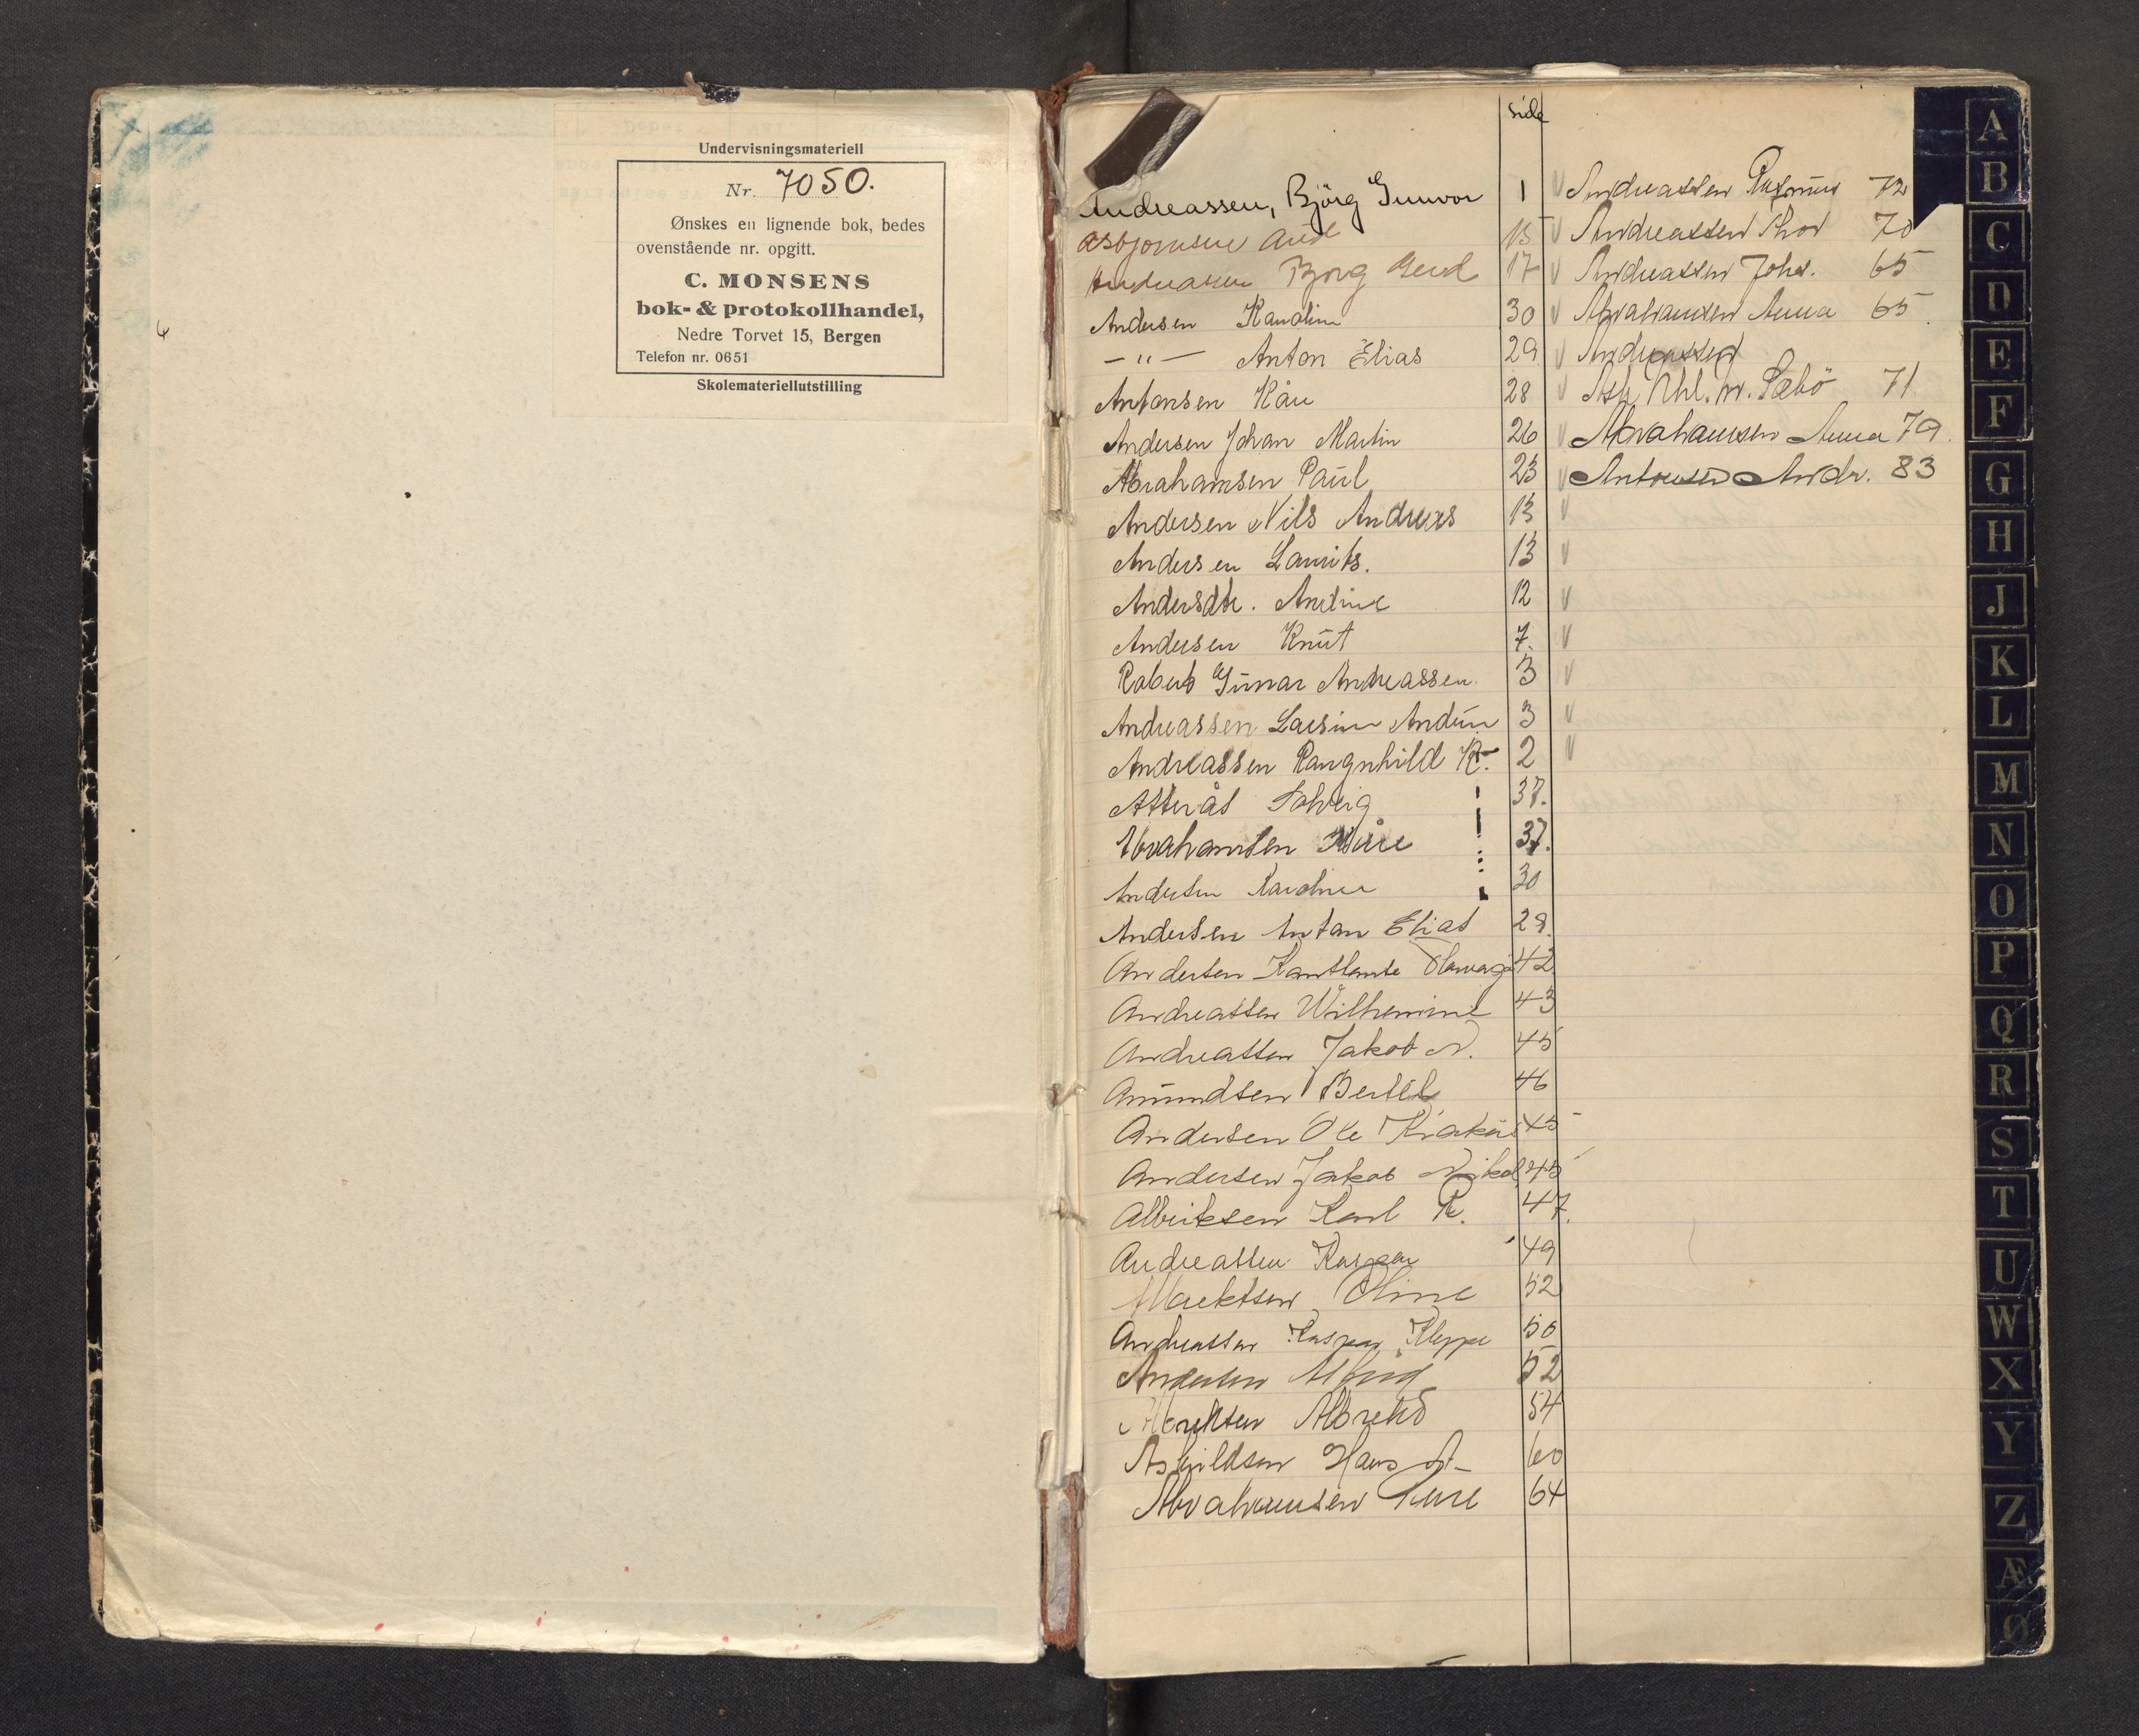 Undervisningsmateriell
Nr. 7050.
Ønskes en lignende bok, bedes
ovenstående nr. opgitt.
C. MONSENS
bok- & protokollhandel,
Nedre Torvet 15, Bergen
Telefon nr. 0651
Skolemateriellutstilling
side
Andreassen, Björg Gunvor 1
Asbjørnsen 15
Andreassen Bjørg Gerd 17
Andersen Karoline 30
— " — Anton Elias 29
Antonsen Kåre 28
Andersen Johan Martin 26
Abrahamsen Paul 23
Andersen Nils Andreas 13
Andersen Laurits. 13
Andersdtr. Andrine 12
Andersen Knut 7.
Robert Gunnar Andreassen. 3
Andreassen Larsine Andrine 3
Andreassen Rangnhild K. 2
Atterås Solveig 37.
Abrahamsen Kåre 37.
Andersen Karoline 30
Andersen Anton Elias 29.
Andersen 42
Andreassen Wilhemine 43
Andreassen Jakob N. 45
Amundsen Bertel 46
Andersen Ole 45
Andersen Jakob Nikol. 45
Albriktsen Karl R. 47.
Andreassen Kaspar 49
Oline 52
Andreassen Kaspar Kleppe 50
Andersen 52
Albrektsen Albrekt 54
Askildsen Hans A- 60
Abrahamsen 64
V Andreassen Rasmus 72
V Andreassen Thor 70
V Andreassen Johs. 65
V Abrahamsen Anna 65
V Andreassen
V Ask Nhl. m. Sæbö 71
V Abrahamsen Anna 79.
V Antonsen Andr. 83
V
V
V
V
V
V
V
A
B
C
D
E
F
G
H
J
K
L
M
N
O
P
Q
R
S
T
U
W
X
Y
Z
Æ
Ø